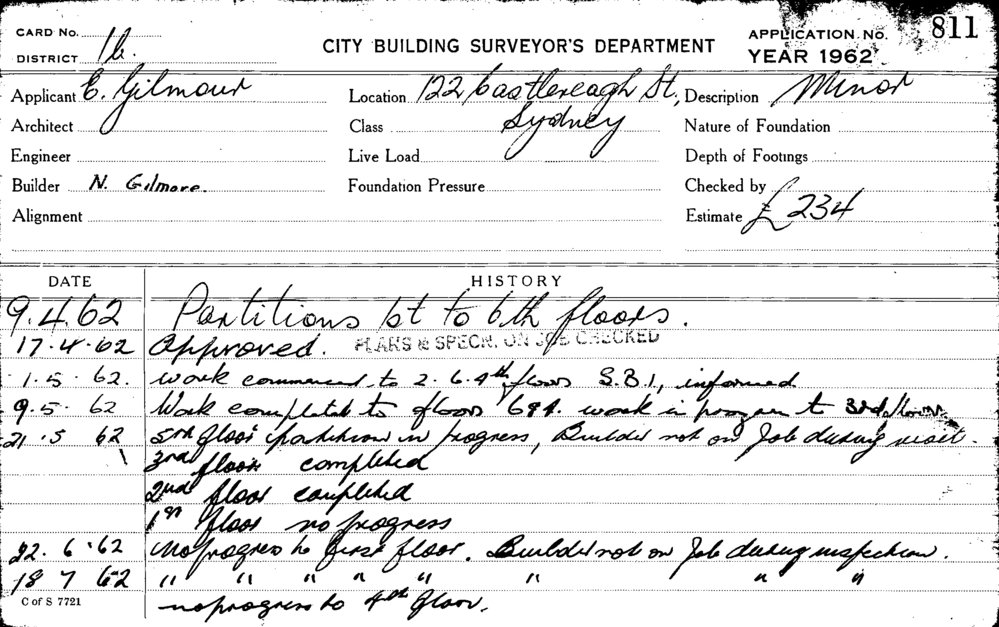 CARD No.
DISTRICT 16.
CITY BUILDING SURVEYOR'S DEPARTMENT
APPLICATION No. 811
YEAR 1962
Applicant E. Gilmour
Location 122 Castlereagh St., Sydney
Description Minor
Architect
Class
Nature of Foundation
Engineer
Live Load
Depth of Footings
Builder N. Gilmore.
Foundation Pressure
Checked by
Alignment
Estimate £234
DATE HISTORY
9.4.62 Partitions 1st to 6th floors.
17.4.62 Approved. PLANS & SPECN. ON JOB CHECKED
1.5.62. work commenced to 2. 6. 4th floors S.B.I., informed
9.5.62 Work completed to floors 6 & 4. work in progress to 3rd floors
21.5 62 5th floor partitions in progress, Builder not on Job during visit.
3rd floor completed
2nd floor completed
1st floor no progress
22.6.62 no progress to first floor. Builder not on Job during inspection.
18 7 62 " " " " " " " "
no progress to 4th floor.
C of S 7721